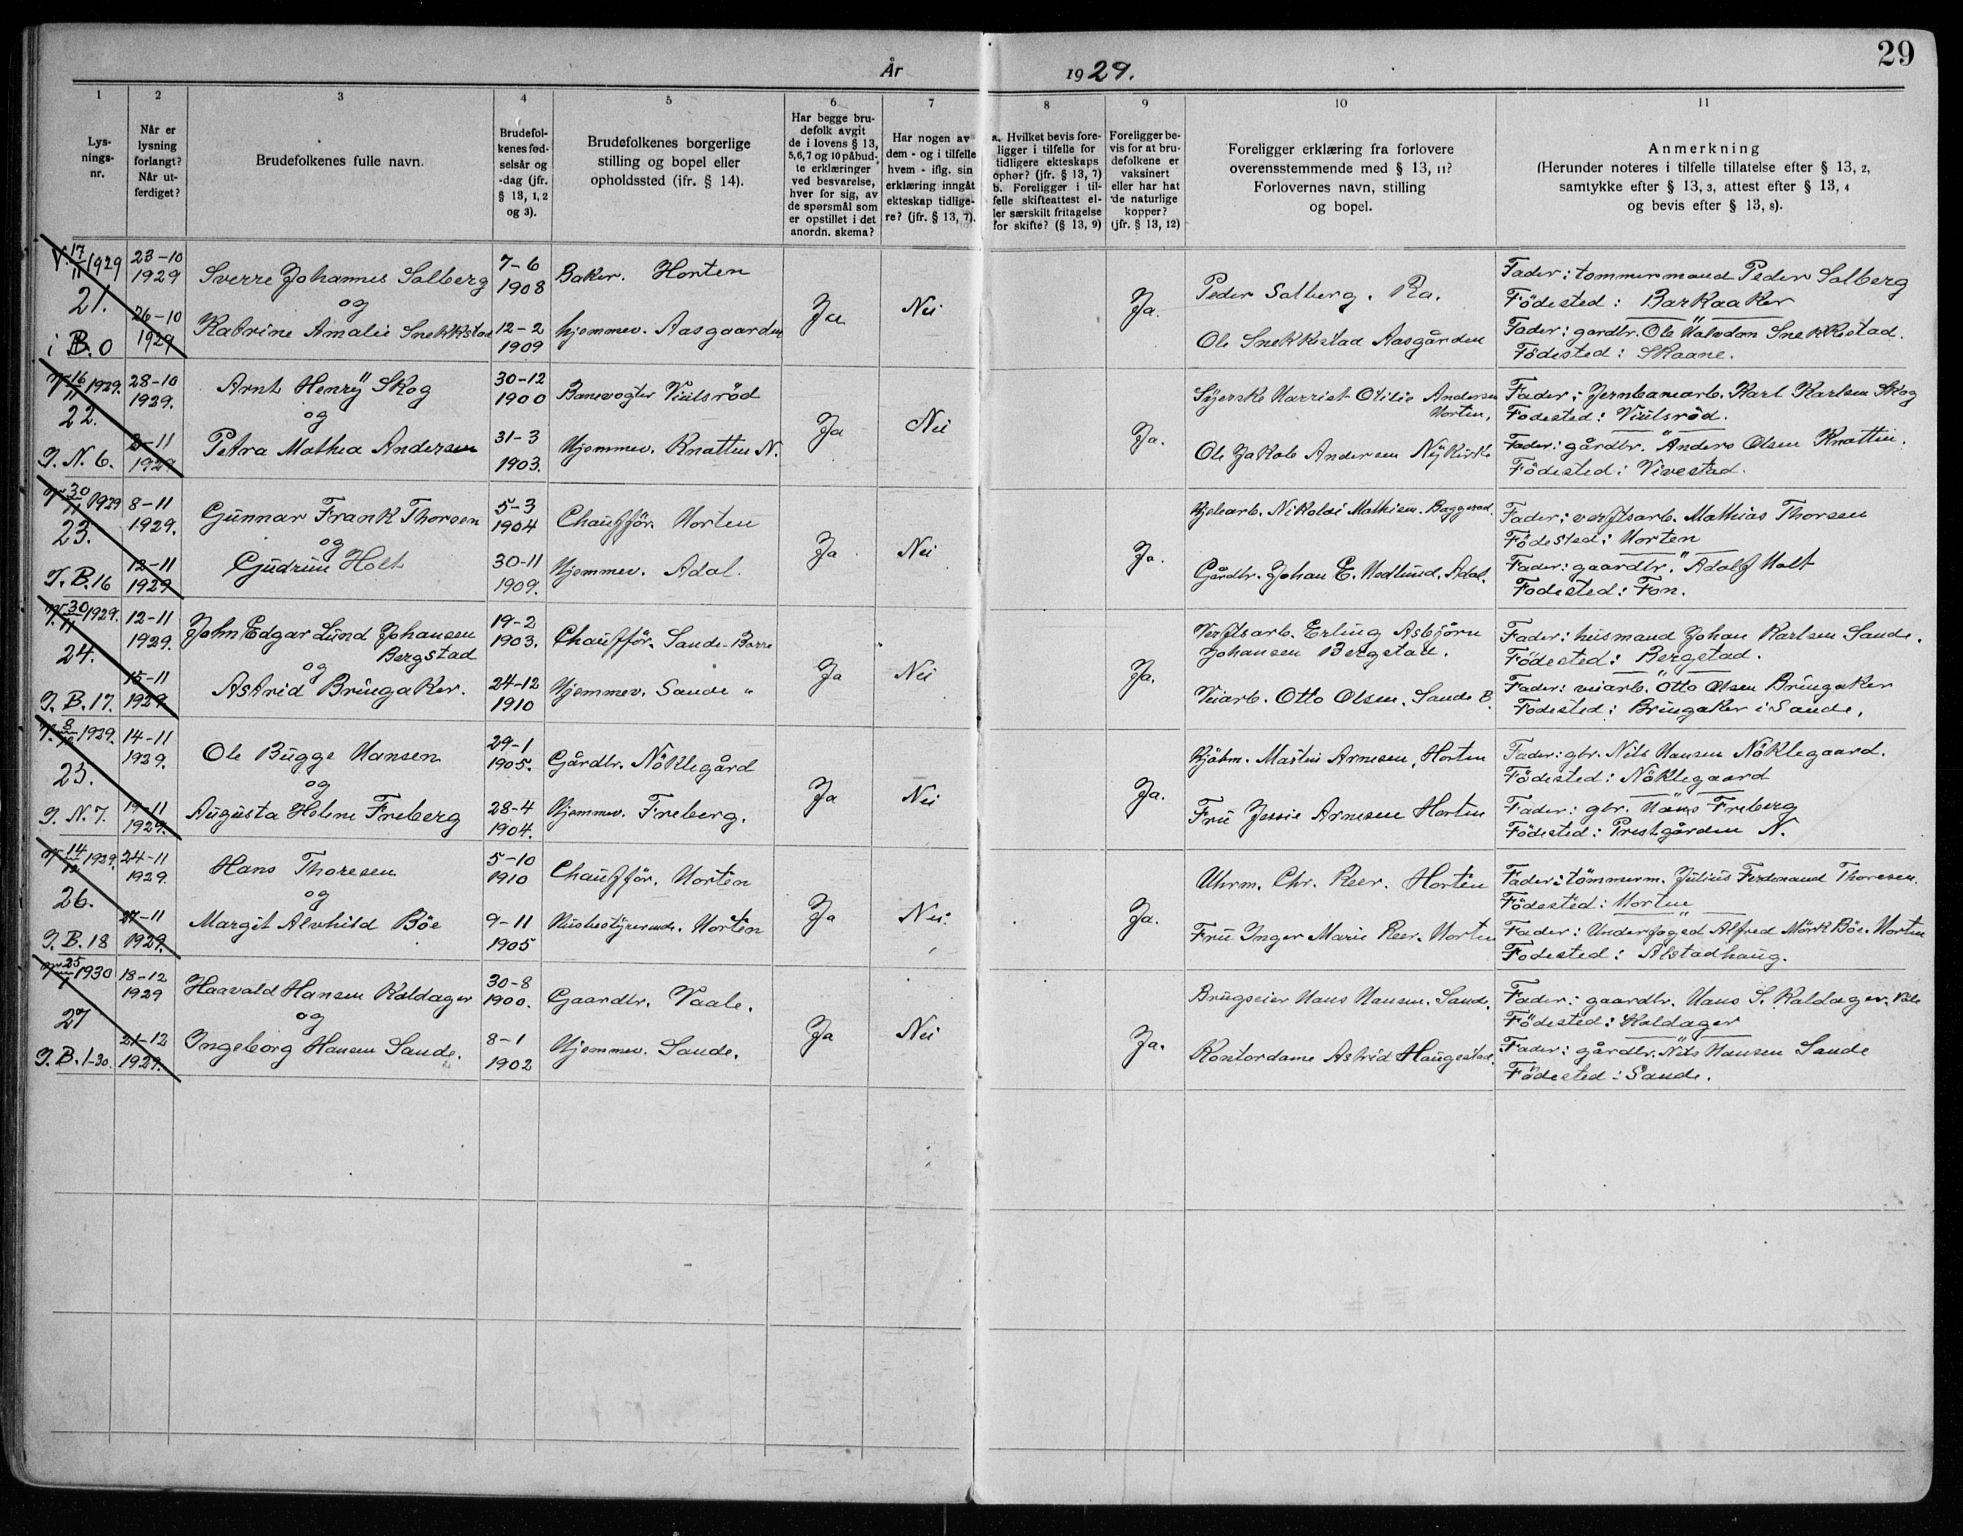 29
År 1929.
1 2 3 4 5 6 7 8 9 10 11
Lys-
nings-
nr.
Når er
lysning
forlangt?
Når ut-
ferdiget?
Brudefolkenes fulle navn.
Brudefol-
kenes fød-
selsår og
-dag (jfr.
§ 13, 1, 2
og 3).
Brudefolkenes borgerlige
stilling og bopel eller
opholdssted (ifr. § 14).
Har begge bru-
defolk avgit
de i lovens § 13,
5,6,7 og 10 påbud-
te erklæringer
ved besvarelse,
hver for sig, av
de spørsmål som
er opstillet i det
anordn. skema?
Har nogen av
dem - og i tilfelle
hvem - iflg. sin
erklæring inngått
ekteskap tidlige-
re? (jfr. § 13, 7).
a. Hvilket bevis fore-
ligger i tilfelle for
tidligere ekteskaps
ophør? (jfr. § 13, 7)
b. Foreligger i til-
felle skifteattest el-
ler særskilt fritagelse
for skifte? (§ 13, 9)
Foreligger be-
vis for at bru-
defolkene er
vaksinert
eller har hat
de naturlige
kopper?
(jfr. § 13, 12)
Foreligger erklæring fra forlovere
overensstemmende med § 13, 11?
Forlovernes navn, stilling
og bopel.
Anmerkning
(Herunder noteres i tilfelle tillatelse efter § 13, 2,
samtykke efter § 13, 3, attest efter § 13, 4
og bevis efter § 13, 8).
V. 17/11 1929
21.
i B. 0
23-10
1929
26-10
1929
Sverre Johannes Solberg
og
Katrine Amalie Snekkstad
7-6
1908
12-2
1909
Baker. Horten
hjemmev. Aasgaarden
Ja
Nei
Ja.
Peder Solberg. Ra.
Ole Snekkestad Aasgården
Fader: tømmermand Peder Solberg
Födested: Barkaaker
Fader: gardbr. Ole Halvdan Snekkestad.
Födested: Skaane.
V. 16/11 1929.
22.
I. N. 6.
28-10
1929.
2-11
1929
Arnt Henry Skog
og
Petra Mathea Andersen
30-12
1900
31-3
1903.
Banevogter Viulsröd
Hjemmev. Knatten N.
Ja
Nei
Ja.
Syerske Harriet Otilie Andersen
Horten,
Ole Jakob Andersen Nykirke
Fader: Jernbanearb. Karl Karlsen Skog
Födested: Viulsröd.
Fader: gårdbr. Anders Olsen Knatten.
Födested: Vivestad.
V. 30/11 1929
23.
I. B. 16
8-11
1929.
12-11
1929
Gunnar Frank Thorsen
og
Gudrun Holt
5-3
1904
30-11
1909.
Chauffør. Horten
Hjemmev. Adal.
Ja
Nei
Ja.
Nikolai Mathisen. Baggerød.
Gårdbr. Johan E. Hedlund. Adal.
Fader: verftsarb. Mathias Thorsen
Födested: Horten
Fader: gaardbr. Adolf Holt
Fodested: Fon.
V. 30/11 1929.
24.
I. B. 17.
12-11
1929.
15-11
1929
John Edgar Lund Johansen
Bergstad
og
Astrid Bringaker.
19-2
1903.
24-12
1910
Chauffør. Sande - Borre
Hjemmev. Sande "
Ja
Nei
Ja.
Verftsarb. Erling Asbjörn
Johansen Bergstad.
Veiarb. Otto Olsen. Sande B.
Fader: husmand Johan Karlsen Sande.
Födested: Bergstad.
Fader: veiarb. Otto Olsen Bringaker
Fodested: Bringaker i Sande,
V. 8/12 1929.
25.
I. N. 7.
14-11
1929.
19-11
1929.
Ole Bugge Hansen
og
Augusta Helene Freberg
29-1
1905.
28-4
1904.
Gårdbr. Nöklegård
Hjemmev. Freberg.
Ja
Nei
Ja.
Kjöbm. Martin Arnesen, Horten
Fru Jessie Arnesen Horten
Fader: gbr. Nils Hansen Nöklegaard.
Födested: Nöklegaard
Fader: gbr. Hans Freberg
Födested: Prestgården N.
V. 14/12 1929.
26.
I. B. 18
24-11
1929.
27-11
1929.
Hans Thoresen
og
Margit Alvhild Böe
5-10
1910
9-11
1905
Chauffør. Horten
Husbestyrerinde. Horten
Ja
Nei.
Ja.
Uhrm. Chr. Reer. Horten
Fru Inger Marie Reer. Horten
Fader: tömmerm. Julius Ferdinand Thoresen.
Födested: Horten
Fader: Underfoged Alfred Mörk Böe. Horten
Fodested: Alstadhaug.
V. 25/1 1930
27
I. B. 1-30.
18-12
1929
21-12
1929.
Haavald Hansen Kaldager
og
Ingeborg Hansen Sande.
30-8
1900.
8-1
1902
Gaardbr. Vaale.
Hjemmev. Sande.
Ja
Nei
Ja.
Brugseier Hans Hansen. Sande.
Kontordame Astrid Haugestad.
Fader: gaardbr. Hans S. Kaldager.
Födested: Kaldager
Fader: gårdbr. Nils Hansen Sande
Födested: Sande.